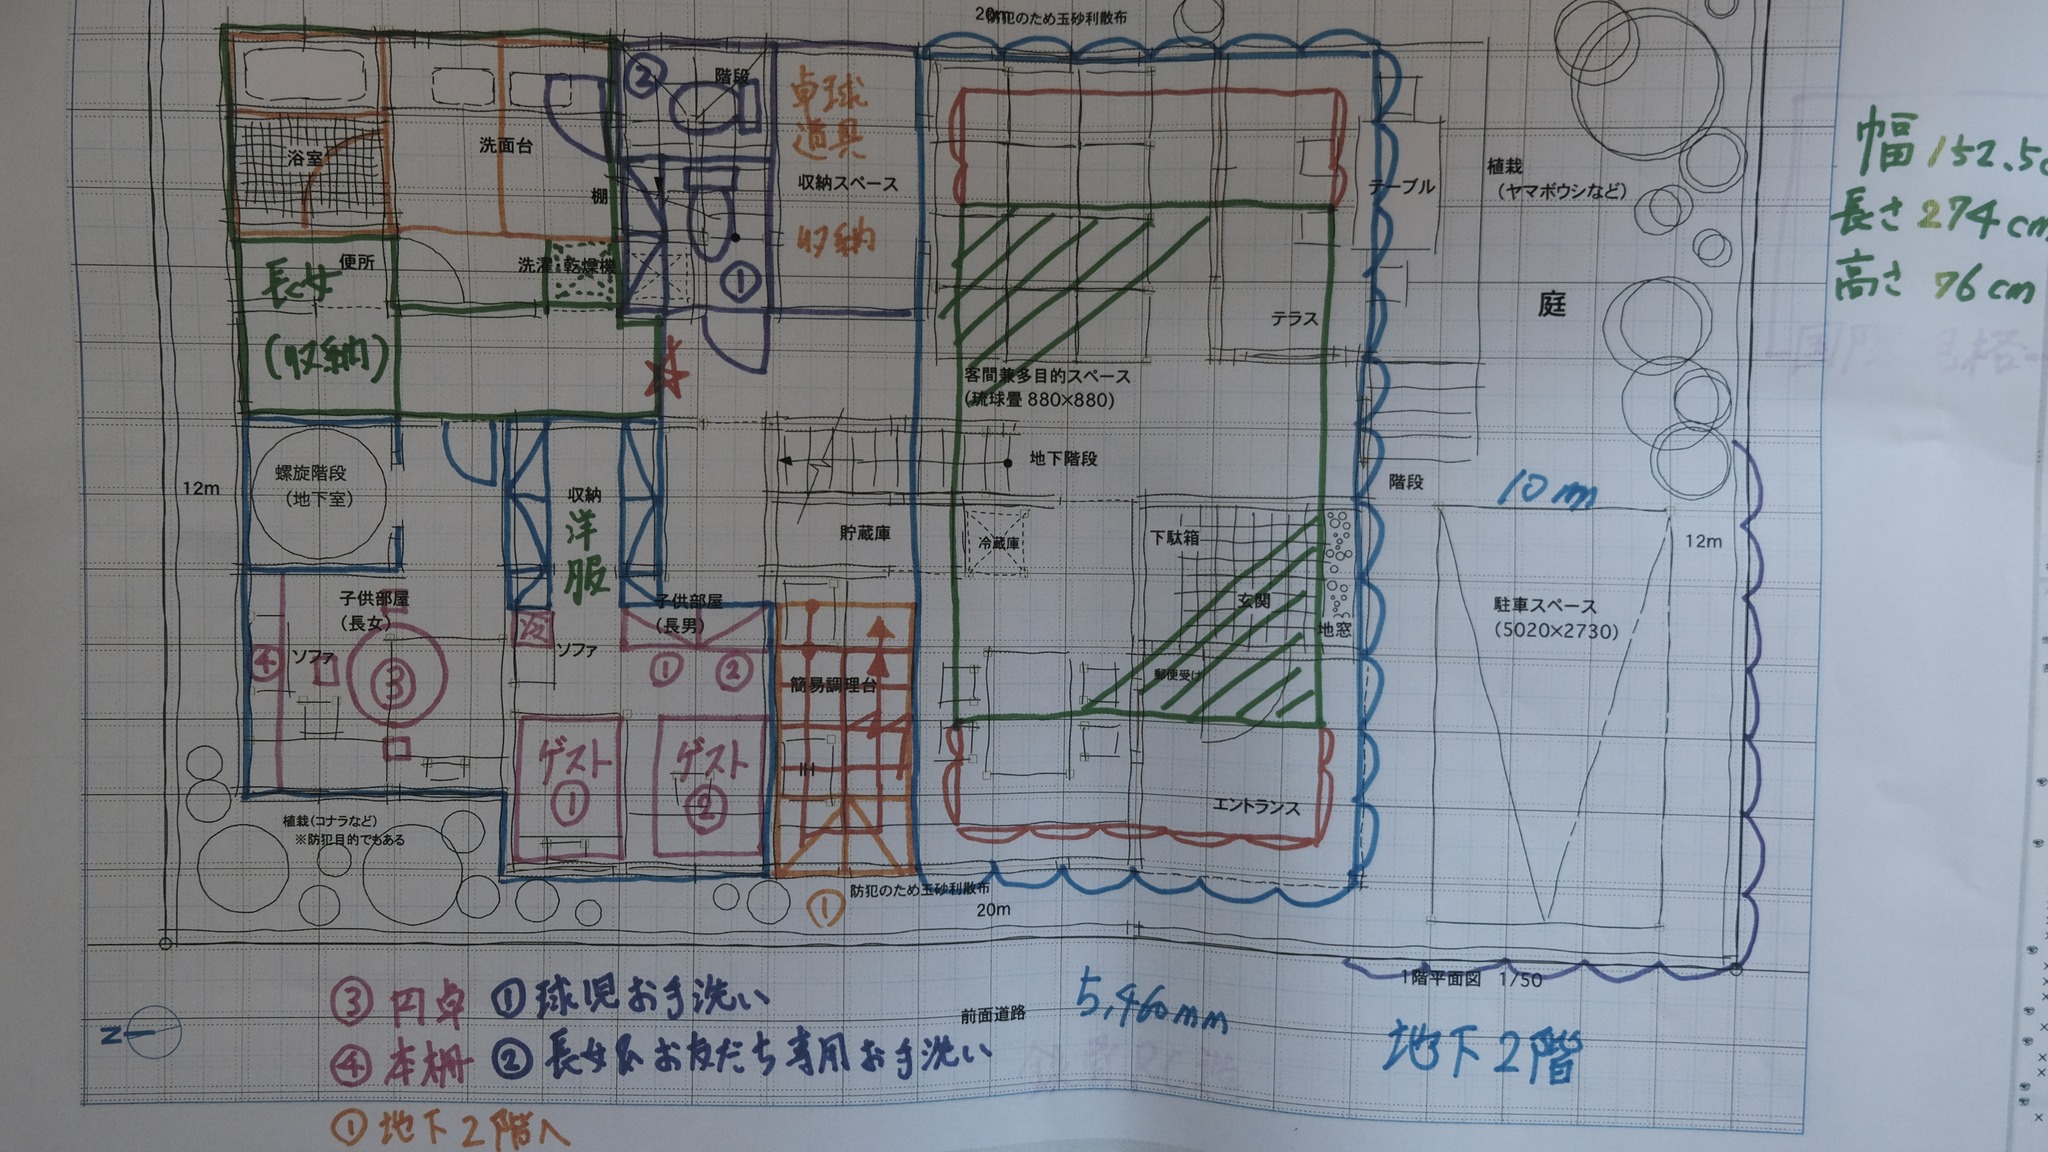 20m
防犯のため玉砂利散布
②
階段
卓球
道具
浴室
洗面台
棚
収納スペース
収納
テーブル
植栽
(ヤマボウシなど)
幅 152.5c
長さ 274cm
高さ 76cm
便所
長女
(収納)
洗濯・乾燥機
①
テラス
庭
客間兼多目的スペース
(琉球畳 880×880)
12m
螺旋階段
(地下室)
収納
洋服
地下階段
階段
10mm
貯蔵庫
冷蔵庫
下駄箱
12m
子供部屋
(長女)
子供部屋
(長男)
玄関
地窓
駐車スペース
(5020×2730)
④
ソファ
③
ソファ
①
②
簡易調理台
郵便受け
ゲスト
①
ゲスト
②
IH
エントランス
植栽(コナラなど)
※防犯目的でもある
①
防犯のため玉砂利散布
20m
1階平面図 1/50
③ 円卓
① 球児お手洗い
前面道路
5,460mm
N
④ 本棚
② 長女&お友だち専用お手洗い
地下2階
① 地下2階へ